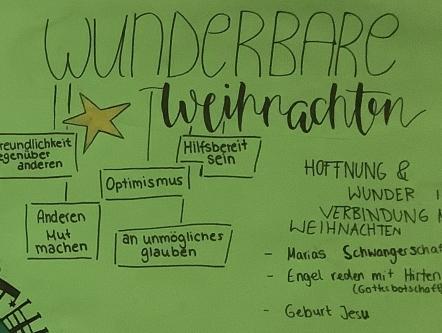 WUNDERBARE
Weihnachten
reundlichkeit
egenüber
anderen
Hilfsbereit
sein
Optimismus
Anderen
Mut
machen
an unmögliches
glauben
HOFFNUNG &
WUNDER I
VERBINDUNG M
WEIHNACHTEN
- Marias Schwangerschaf
- Engel reden mit Hirten
(Gottesbotschaft
- Geburt Jesu